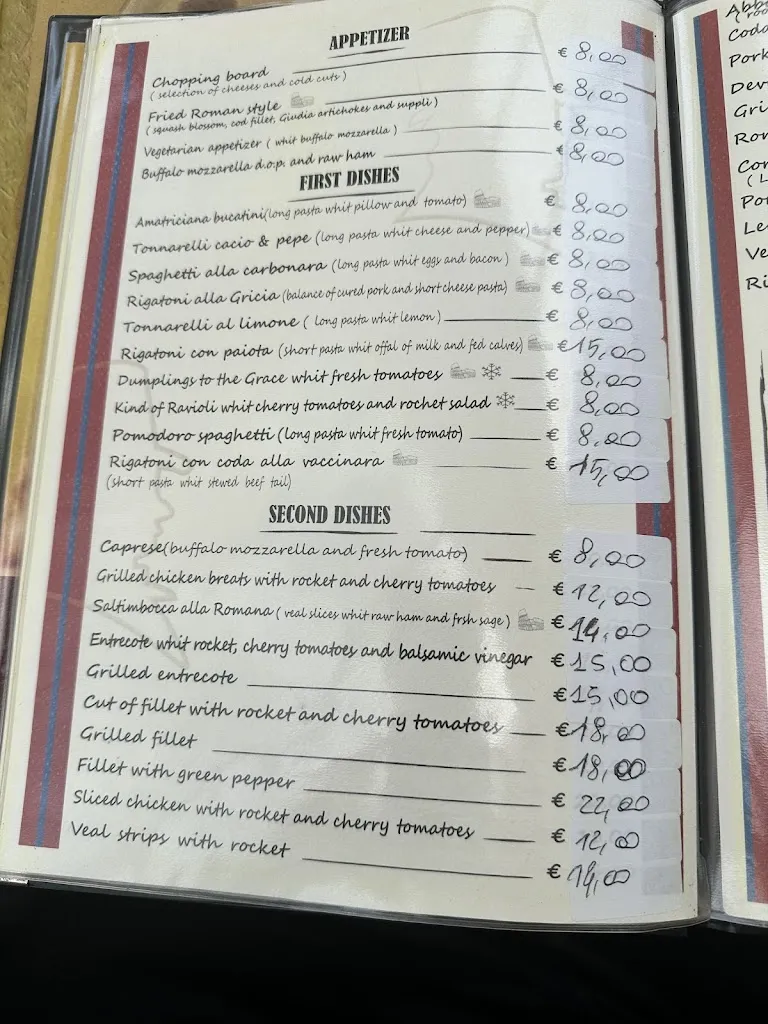 APPETIZER
Chopping board € 8,00
(selection of cheeses and cold cuts)
Fried Roman style € 8,00
(squash blossom, cod fillet, Giudia artichokes and supplì)
Vegetarian appetizer (whit buffalo mozzarella) € 8,00
Buffalo mozzarella d.o.p. and raw ham € 8,00
FIRST DISHES
Amatriciana bucatini(long pasta whit pillow and tomato) € 8,00
Tonnarelli cacio & pepe (long pasta whit cheese and pepper) € 8,00
Spaghetti alla carbonara (long pasta whit eggs and bacon) € 8,00
Rigatoni alla Gricia (balance of cured pork and short cheese pasta) € 8,00
Tonnarelli al limone ( long pasta whit lemon) € 8,00
Rigatoni con paiota (short pasta whit offal of milk and fed calves) € 15,00
Dumplings to the Grace whit fresh tomatoes € 8,00
Kind of Ravioli whit cherry tomatoes and rochet salad € 8,00
Pomodoro spaghetti (long pasta whit fresh tomato) € 8,00
Rigatoni con coda alla vaccinara € 15,00
(short pasta whit stewed beef tail)
SECOND DISHES
Caprese(buffalo mozzarella and fresh tomato) € 8,00
Grilled chicken breats with rocket and cherry tomatoes € 12,00
Saltimbocca alla Romana ( veal slices whit raw ham and frsh sage) € 14,00
Entrecote whit rocket, cherry tomatoes and balsamic vinegar € 15,00
Grilled entrecote € 15,00
Cut of fillet with rocket and cherry tomatoes € 18,00
Grilled fillet € 18,00
Fillet with green pepper € 22,00
Sliced chicken with rocket and cherry tomatoes € 12,00
Veal strips with rocket € 14,00